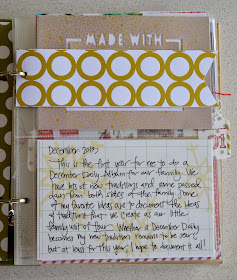 MADE WITH
31
December 2013
This is the first year for me to do a
December Daily Album for our family. We
have lots of new traditions and some passed
down from both sides of the family. Some
of my favorite ideas are to document the ideas
of traditions that we create as our little
family unit of four. Whether a December Daily
becomes my new tradition remains to be seen,
but at least for this year, I hope to document it all!